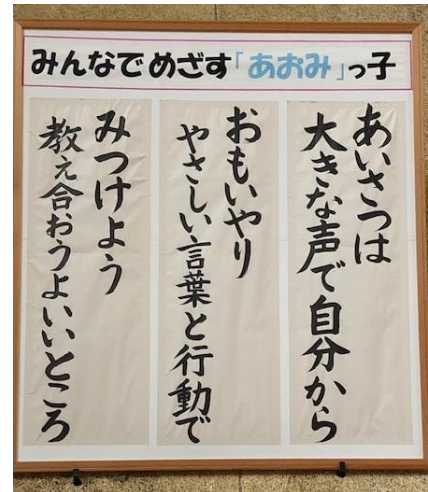 みんなでめざす「あおみ」っ子
あいさつは
大きな声で自分から
おもいやり
やさしい言葉と行動で
みつけよう
教え合おうよいいところ